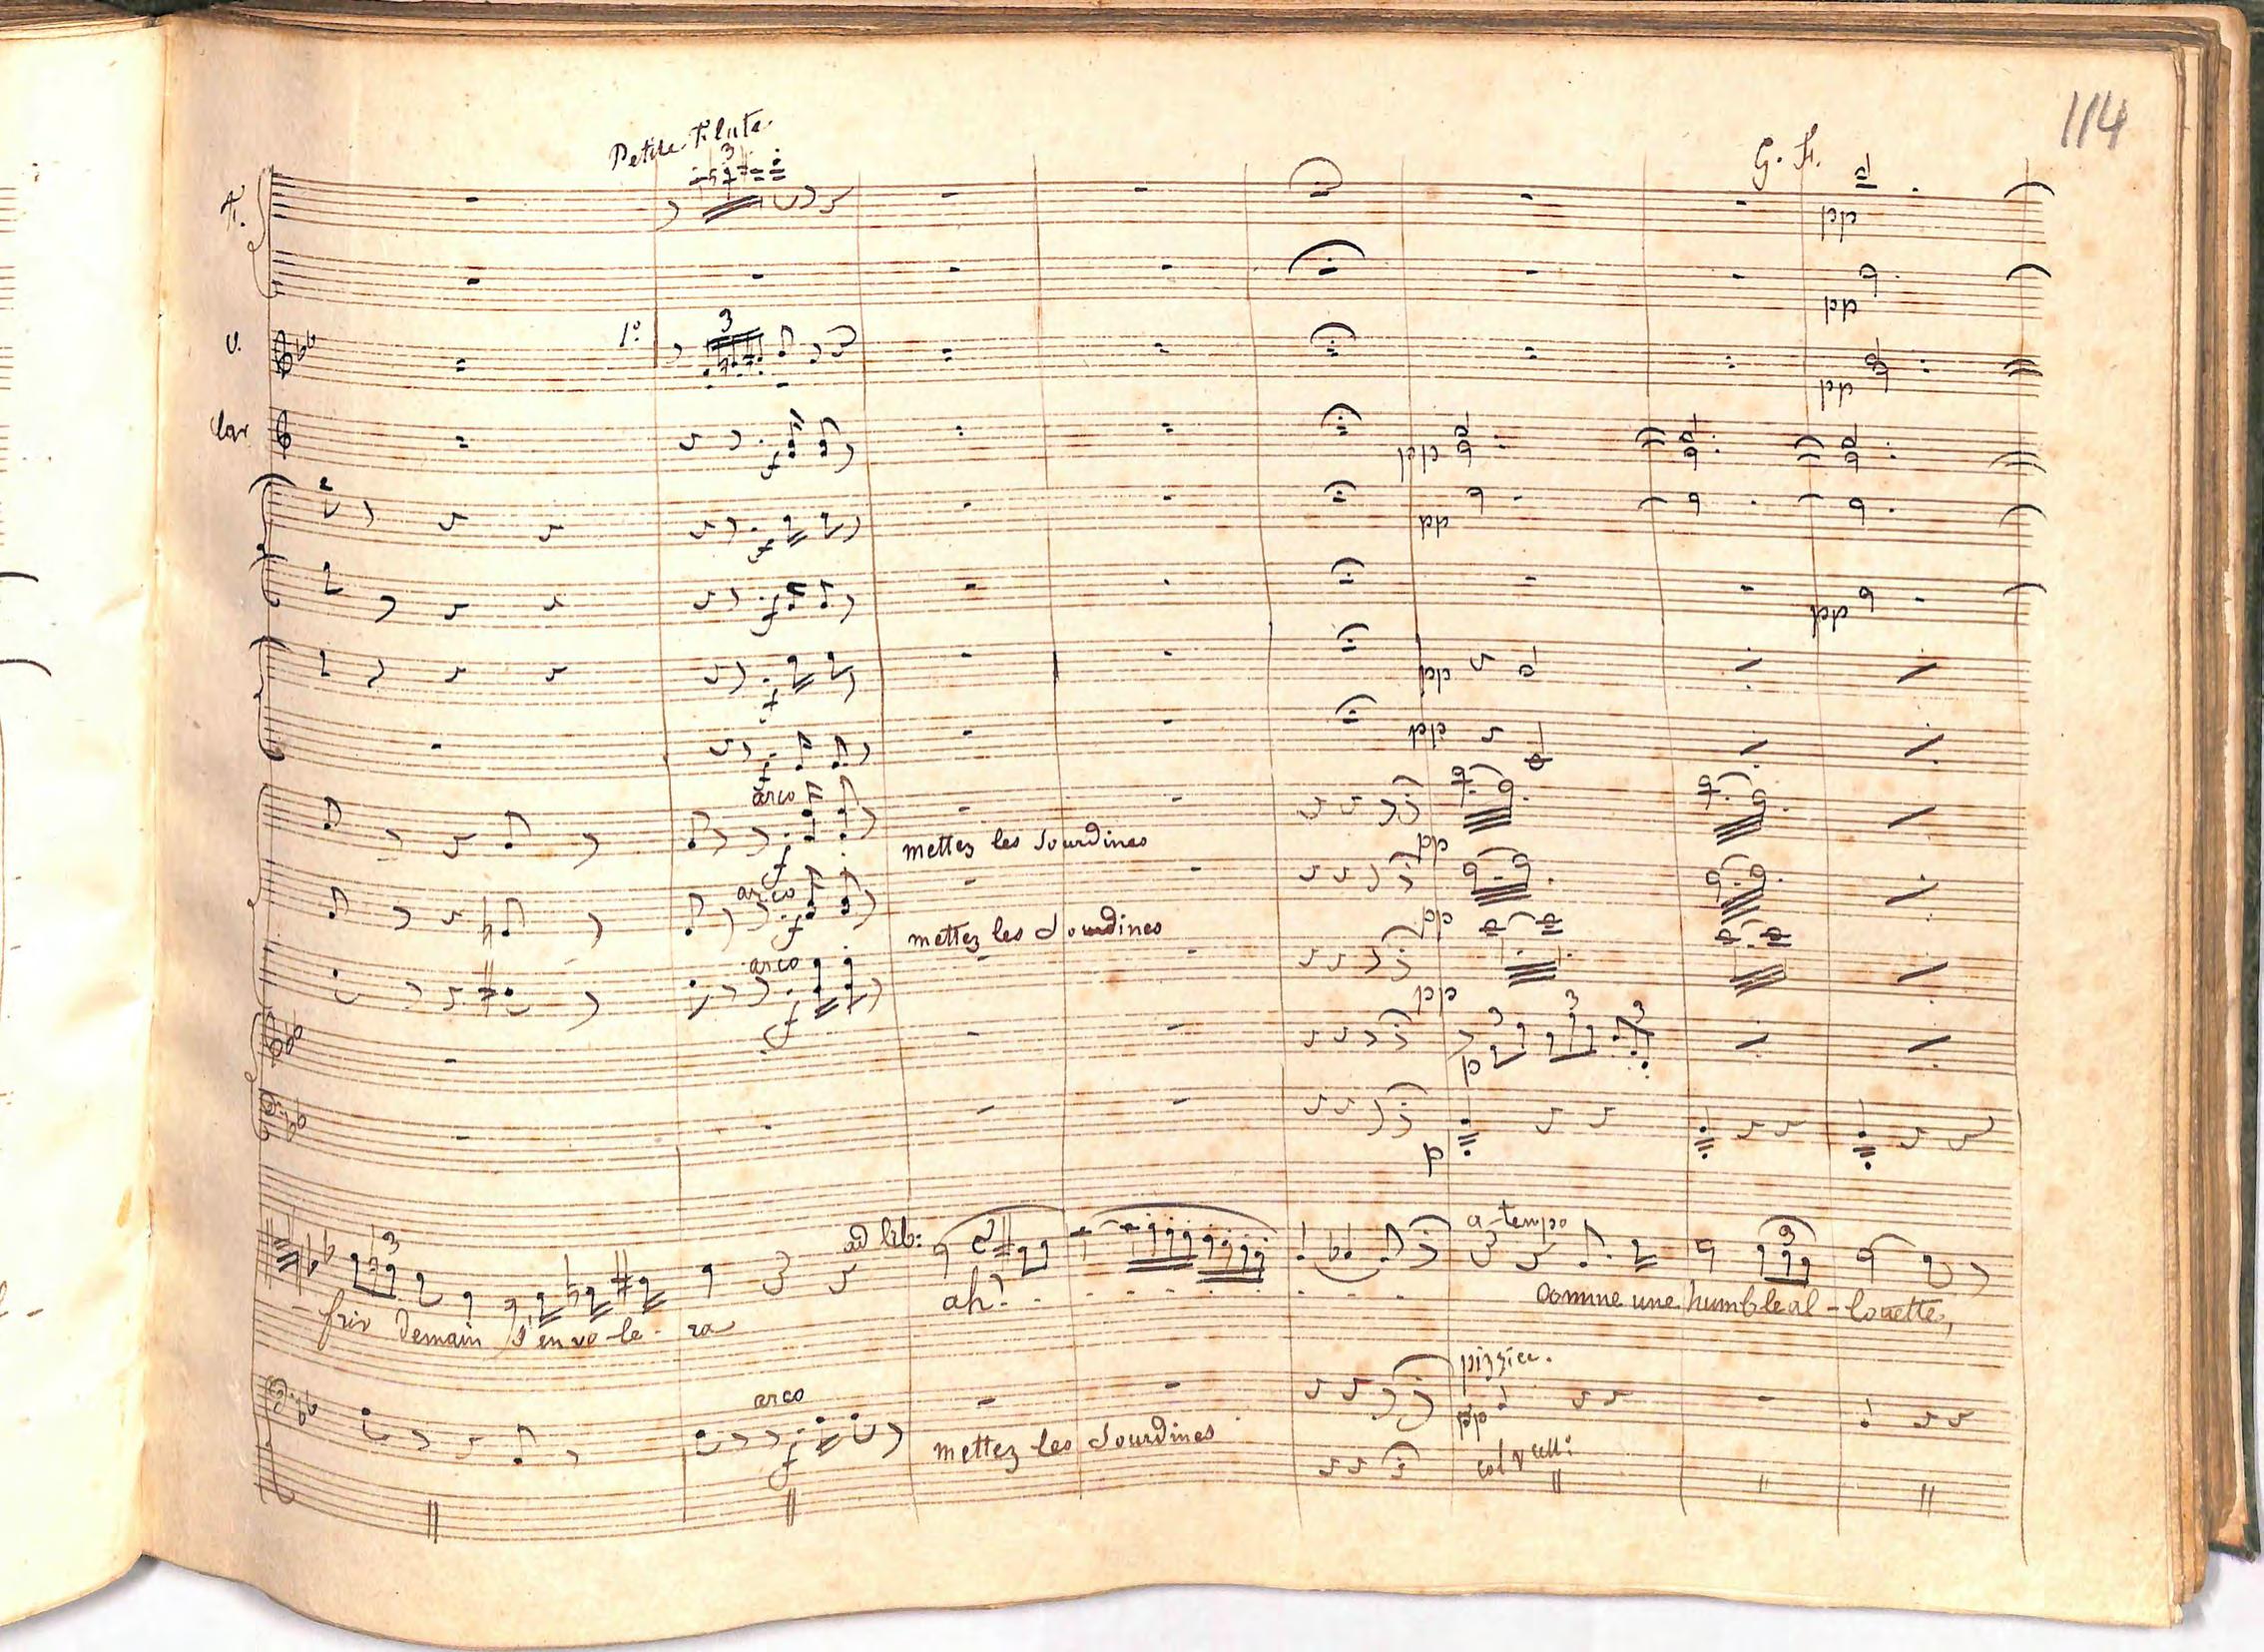 114
Petite Flute
G. Fl.
3
pp
Fl.
pp
V.
1º
3
pp
f
ppp
2
f
pp
f
pp
f
pp
f
pp
arco
f
mettez les Sourdines
pp
arco
f
mettez les Sourdines
pp
arco
f
pp
p
3
3
3
p
ad lib:
a tempo
3
3
ah!
frir demain s'en vo-le-ra
Comme une humble al-louette,
arco
pizzicc.
f
pp
mettez les Sourdines
col vcelli